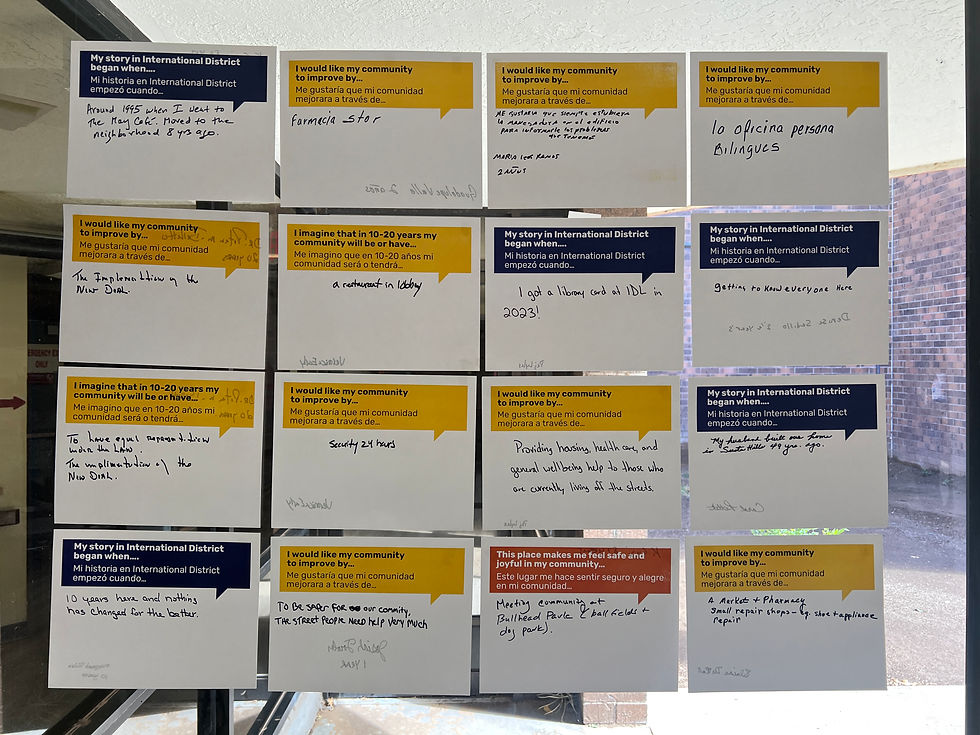 My story in International District
began when....
Mi historia en International District
empezó cuando...
Around 1995 when I went to
The May Café. Moved to the
neighbourhood 8 yrs ago.
I would like my community
to improve by...
Me gustaría que mi comunidad
mejorara a través de...
Farmacia star
Guadalupe Vallo 2 años
I would like my community
to improve by...
Me gustaría que mi comunidad
mejorara a través de...
ME GUSTARIA que siempre estubiera
la en el edificio
PARA informarle los problemas
que TENEMOS
MARIA RAMOS
2 AÑOS
I would like my community
to improve by...
Me gustaría que mi comunidad
mejorara a través de...
la oficina persona
Bilingues
I would like my community
to improve by...
Me gustaría que mi comunidad
mejorara a través de...
20 years
The Implementation of the
New Deal.
I imagine that in 10-20 years my
community will be or have...
Me imagino que en 10-20 años mi
comunidad será o tendrá...
a restaurant in lobby
My story in International District
began when....
Mi historia en International District
empezó cuando...
I got a library card at IDL in
2023!
My story in International District
began when....
Mi historia en International District
empezó cuando...
getting to know everyone here
Denise Sedillo
I imagine that in 10-20 years my
community will be or have...
Me imagino que en 10-20 años mi
comunidad será o tendrá...
20 years
To have equal representation
under the Law.
The implimentation of the
New Deal.
I would like my community
to improve by...
Me gustaría que mi comunidad
mejorara a través de...
Security 24 hours
I would like my community
to improve by...
Me gustaría que mi comunidad
mejorara a través de...
Providing housing, health care, and
general wellbeing help to those who
are currently living off the streets.
My story in International District
began when....
Mi historia en International District
empezó cuando...
My husband built our home
in Siesta Hills 49 yrs. ago.
My story in International District
began when....
Mi historia en International District
empezó cuando...
10 years here and nothing
has changed for the better.
I would like my community
to improve by...
Me gustaría que mi comunidad
mejorara a través de...
To Be safer FOR our commity.
THE STREET PEOPLE NEED HELP VERY MUCH
1 year
This place makes me feel safe and
joyful in my community...
Este lugar me hace sentir seguro y alegre
en mi comunidad...
Meeting community at
Bullhead Park (ball fields +
dog park).
I would like my community
to improve by...
Me gustaría que mi comunidad
mejorara a través de...
A Market + Pharmacy
Small repair shops - eg. shoe + appliance
repair
ONLY